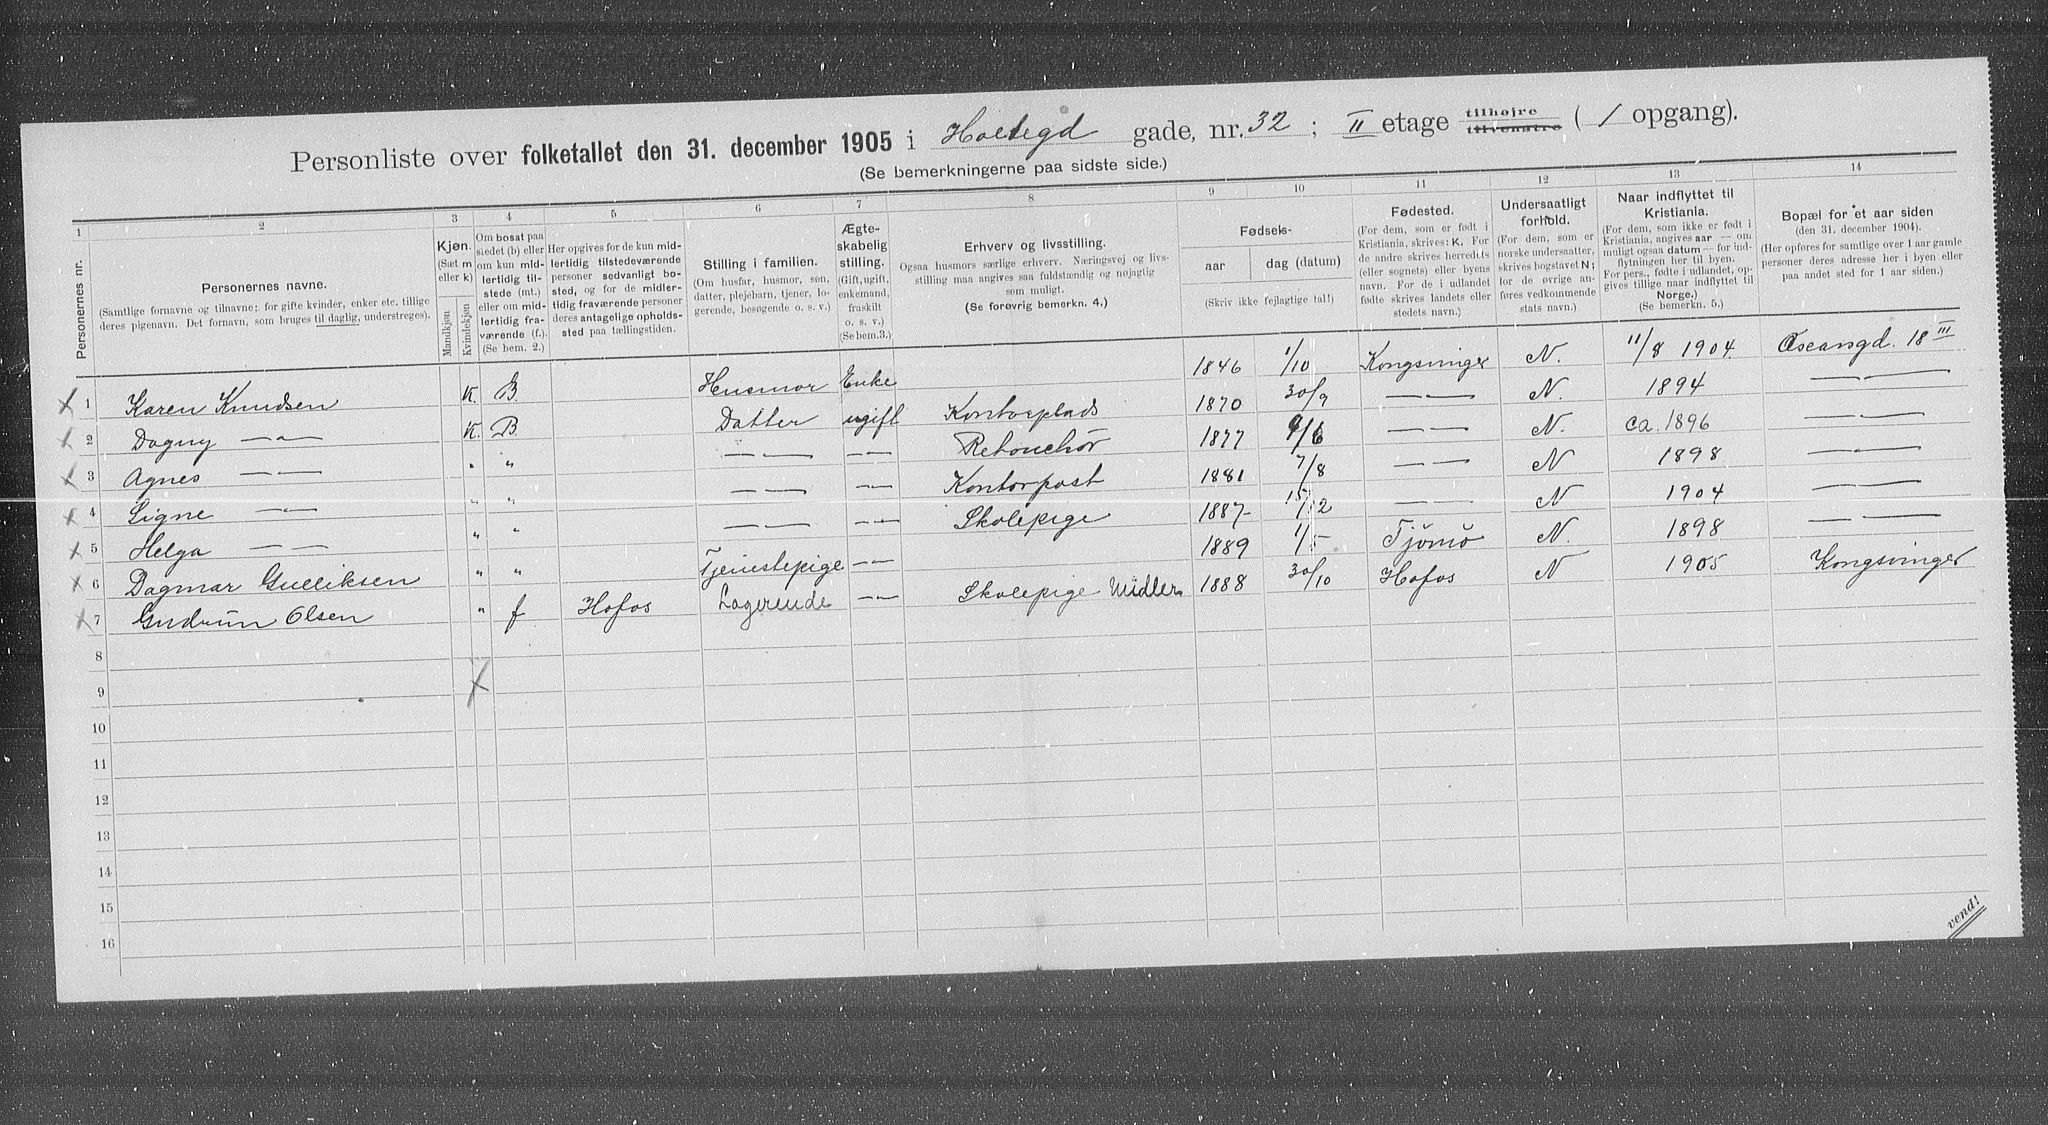 Personliste over folketallet den 31. december 1905 i Holtegd gade, nr. 32 ; II etage tilhøjre tilvenstre ( / opgang).
(Se bemerkningerne paa sidste side.)
1 2 3 4 5 6 7 8 9 10 11 12 13 14
Personernes nr.
Personernes navne.
(Samtlige fornavne og tilnavne; for gifte kvinder, enker etc. tillige
deres pigenavn. Det fornavn, som bruges til daglig, understreges).
Kjøn.
(Sæt m
eller k)
Mandkjøn
Kvindekjøn
Om bosat paa
stedet (b) eller
om kun mid-
lertidig til-
stede (mt.)
eller om mid-
lertidig fra-
værende (f.).
(Se bem. 2.)
Her opgives for de kun mid-
lertidig tilstedeværende
personer sedvanligt bo-
sted, og for de midler-
tidig fraværende personer
deres antagelige opholds-
sted paa tællingstiden.
Stilling i familien.
(Om husfar, husmor, søn,
datter, plejebarn, tjener, lo-
gerende, besøgende o. s. v.)
Ægte-
skabelig
stilling.
(Gift, ugift,
enkemand,
fraskilt
o. s. v.)
(Se bem. 3.)
Erhverv og livsstilling.
Ogsaa husmors særlige erhverv. Næringsvej og livs-
stilling maa angives saa fuldstændig og nøjagtig
som muligt.
(Se forøvrig bemerkn. 4.)
Fødsels-
aar dag (datum)
(Skriv ikke fejlagtige tal!)
Fødested.
(For dem, som er født i
Kristiania, skrives: K. For
de andre skrives herredets
(eller sognets) eller byens
navn. For de i udlandet
fødte skrives landets eller
stedets navn.)
Undersaatligt
forhold.
(For dem, som er
norske undersatter,
skrives bogstavet N;
for de øvrige an-
føres vedkommende
stats navn.)
Naar indflyttet til
Kristiania.
(For dem, som ikke er født i
Kristiania, angives aar — om
muligt ogsaa datum — for ind-
flytningen her til byen.
For pers., fødte i udlandet, op-
gives tillige naar indflyttet til
Norge.)
(Se bemerkn. 5.)
Bopæl for et aar siden
(den 31. december 1904).
(Her opføres for samtlige over 1 aar gamle
personer deres adresse her i byen eller
paa andet sted for 1 aar siden.)
1 Karen Knudsen K. B. Husmor Enke 1846 1/10 Kongsvinger N. 11/8 1904 Oscarsgd. 18 III
2 Dagny — " — K. B. Datter ugift Kontorplads 1870 30/9 — " — N. 1894 — " —
3 Agnes — " — " " — " — — " — Retouchør 1877 9/6 — " — N. ca. 1896 — " —
4 Signe — " — " " — " — — " — Kontorpost 1881 7/8 — " — N 1898 — " —
5 Helga — " — " " — " — — " — Skolepige 1887 15/12 — " — N 1904 — " —
6 Dagmar Gulliksen " " Tjenestepige — " — 1889 1/5 Tjömö N. 1898 — " —
7 Gudrun Olsen " f Hofos Logerende — " — Skolepige Midler 1888 30/10 Hofos N 1905 Kongsvinger
8
9
10
11
12
13
14
15
16
vend!